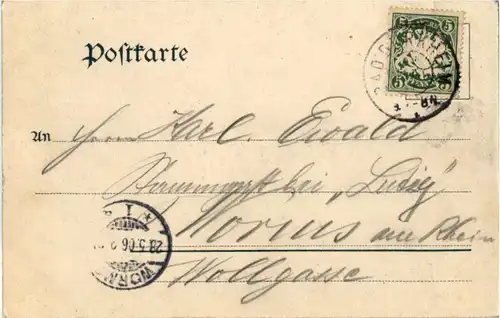 Postkarte
5 5
BAD DÜRKHEIM
5 5
An
Herrn Karl Ewald
bei „Ludwig"
Worms am Rhein
Wollgasse
WORMS
28.5.06